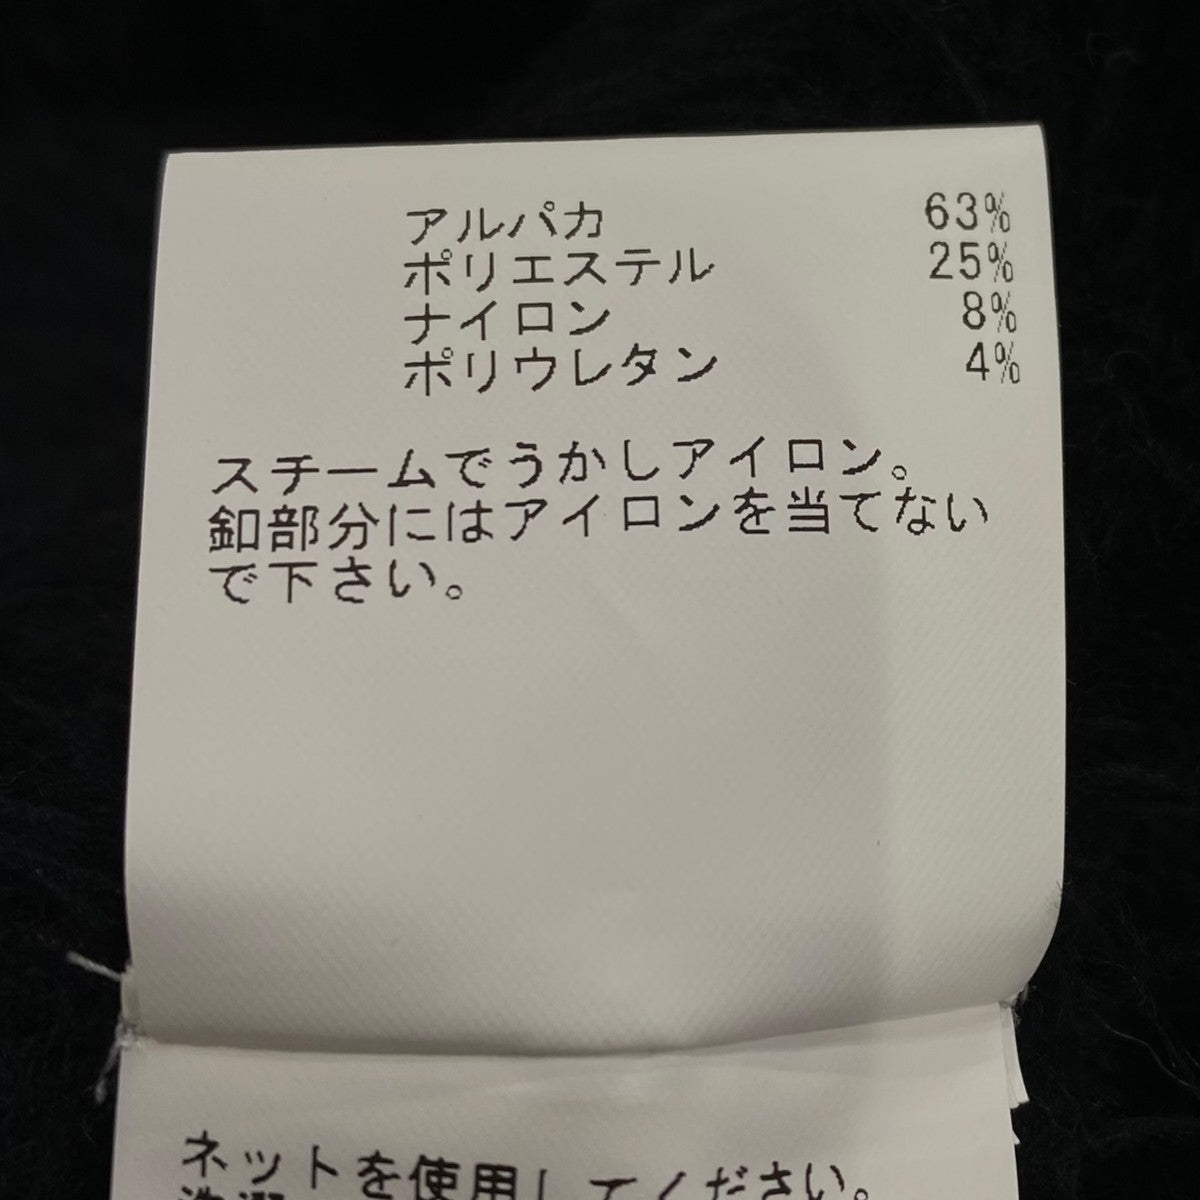 アルパカ 63%
ポリエステル 25%
ナイロン 8%
ポリウレタン 4%
スチームでうかしアイロン。
釦部分にはアイロンを当てない
で下さい。
ネットを使用してください。